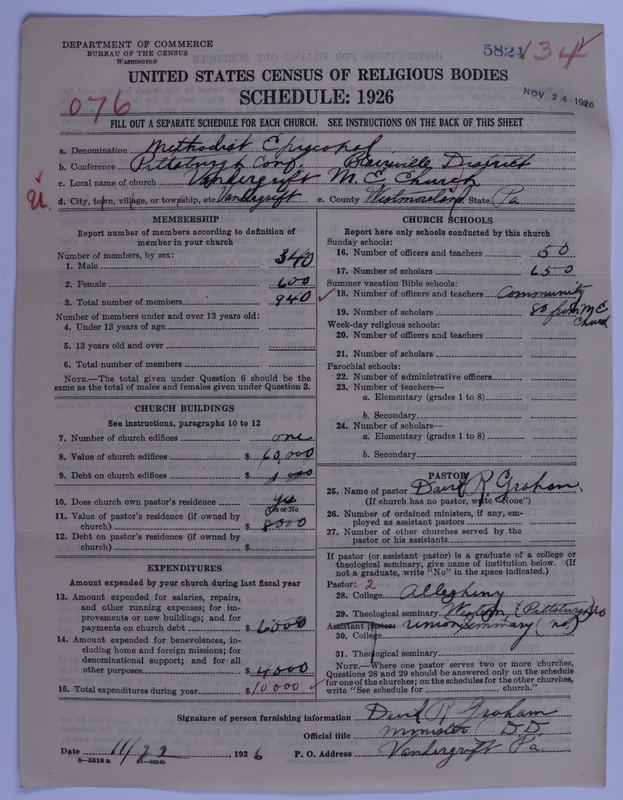 DEPARTMENT OF COMMERCE
BUREAU OF THE CENSUS
WASHINGTON
5824 134
UNITED STATES CENSUS OF RELIGIOUS BODIES
SCHEDULE: 1926
NOV 24 1926
076
FILL OUT A SEPARATE SCHEDULE FOR EACH CHURCH. SEE INSTRUCTIONS ON THE BACK OF THIS SHEET
a. Denomination Methodist Episcopal
b. Conference Pittsburgh Conf. Blairsville District
c. Local name of church Vandergrift M. E. Church
d. City, town, village, or township, etc. Vandergrift e. County Westmoreland State Pa
MEMBERSHIP
Report number of members according to definition of
member in your church
Number of members, by sex:
1. Male 340
2. Female 600
3. Total number of members 940
Number of members under and over 13 years old:
4. Under 13 years of age
5. 13 years old and over
6. Total number of members
NOTE.—The total given under Question 6 should be the
same as the total of males and females given under Question 3.
CHURCH BUILDINGS
See instructions, paragraphs 10 to 12
7. Number of church edifices one
8. Value of church edifices $ 60,000
9. Debt on church edifices $
10. Does church own pastor's residence yes
Yes or No
11. Value of pastor's residence (if owned by
church) $ 8000
12. Debt on pastor's residence (if owned by
church) $
EXPENDITURES
Amount expended by your church during last fiscal year
13. Amount expended for salaries, repairs,
and other running expenses; for im-
provements or new buildings; and for
payments on church debt $ 6000
14. Amount expended for benevolences, in-
cluding home and foreign missions; for
denominational support; and for all
other purposes $ 4000
15. Total expenditures during year $ 10000
CHURCH SCHOOLS
Report here only schools conducted by this church
Sunday schools:
16. Number of officers and teachers 50
17. Number of scholars 650
Summer vacation Bible schools:
18. Number of officers and teachers Community
19. Number of scholars 80 from M E
Church
Week-day religious schools:
20. Number of officers and teachers
21. Number of scholars
Parochial schools:
22. Number of administrative officers
23. Number of teachers—
a. Elementary (grades 1 to 8)
b. Secondary
24. Number of scholars—
a. Elementary (grades 1 to 8)
b. Secondary
PASTOR
25. Name of pastor David R. Graham
(If church has no pastor, write "None")
26. Number of ordained ministers, if any, em-
ployed as assistant pastors
27. Number of other churches served by the
pastor or his assistants
If pastor (or assistant pastor) is a graduate of a college or
theological seminary, give name of institution below. (If
not a graduate, write "No" in the space indicated.)
Pastor: 2
28. College Allegheny
29. Theological seminary Western (Pittsburgh) no
Assistant pastor: Union Seminary (no)
30. College
31. Theological seminary
NOTE.—Where one pastor serves two or more churches,
Questions 28 and 29 should be answered only on the schedule
for one of the churches; on the schedules for the other churches,
write "See schedule for church."
Signature of person furnishing information David R Graham
Official title Minister D.D.
Date 11/22, 1926 P. O. Address Vandergrift Pa.
8—5518a